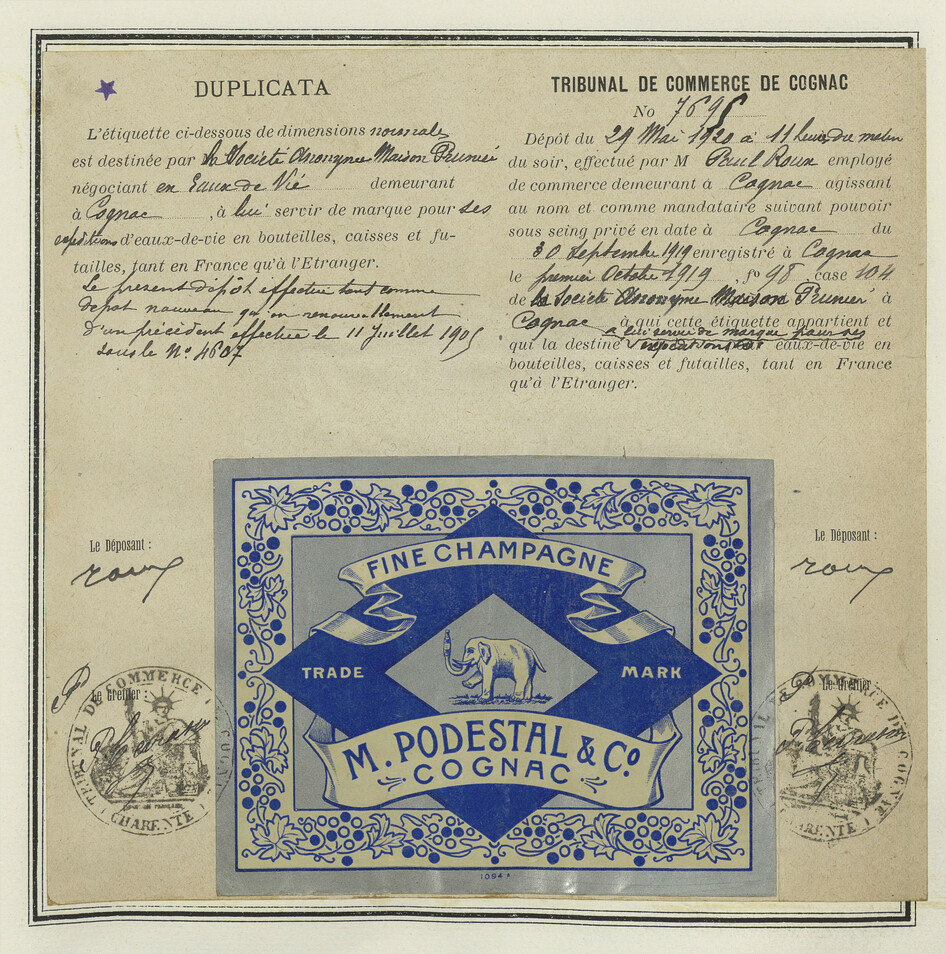 DUPLICATA
L'étiquette ci-dessous de dimensions normales
est destinée par la Société Anonyme Maison Prunier
négociant en Eaux de Vie demeurant
à Cognac, à lui servir de marque pour ses
expéditions d'eaux-de-vie en bouteilles, caisses et fu-
tailles, tant en France qu'à l'Etranger.
Le présent dépôt effectué tant comme
dépôt nouveau qu'en renouvellement
d'un précédent effectué le 11 Juillet 1905
sous le No 4607
TRIBUNAL DE COMMERCE DE COGNAC
No 7696
Dépôt du 29 Mai 1920 à 11 heures du matin
du soir, effectué par M Paul Roux employé
de commerce demeurant à Cognac agissant
au nom et comme mandataire suivant pouvoir
sous seing privé en date à Cognac du
30 Septembre 1919 enregistré à Cognac
le premier Octobre 1919 fo 98 case 104
de la Société Anonyme Maison Prunier à
Cognac à qui cette étiquette appartient et
à lui servir de marque pour ses
qui la destine expéditions d' eaux-de-vie en
bouteilles, caisses et futailles, tant en France
qu'à l'Etranger.
Le Déposant :
roux
Le Déposant :
roux
P Le Greffier :
TRIBUNAL DE COMMERCE COGNAC
(CHARENTE)
P Le Greffier
TRIBUNAL DE COMMERCE DE COGNAC
(CHARENTE)
FINE CHAMPAGNE
TRADE MARK
M. PODESTAL & Co.
COGNAC
1094